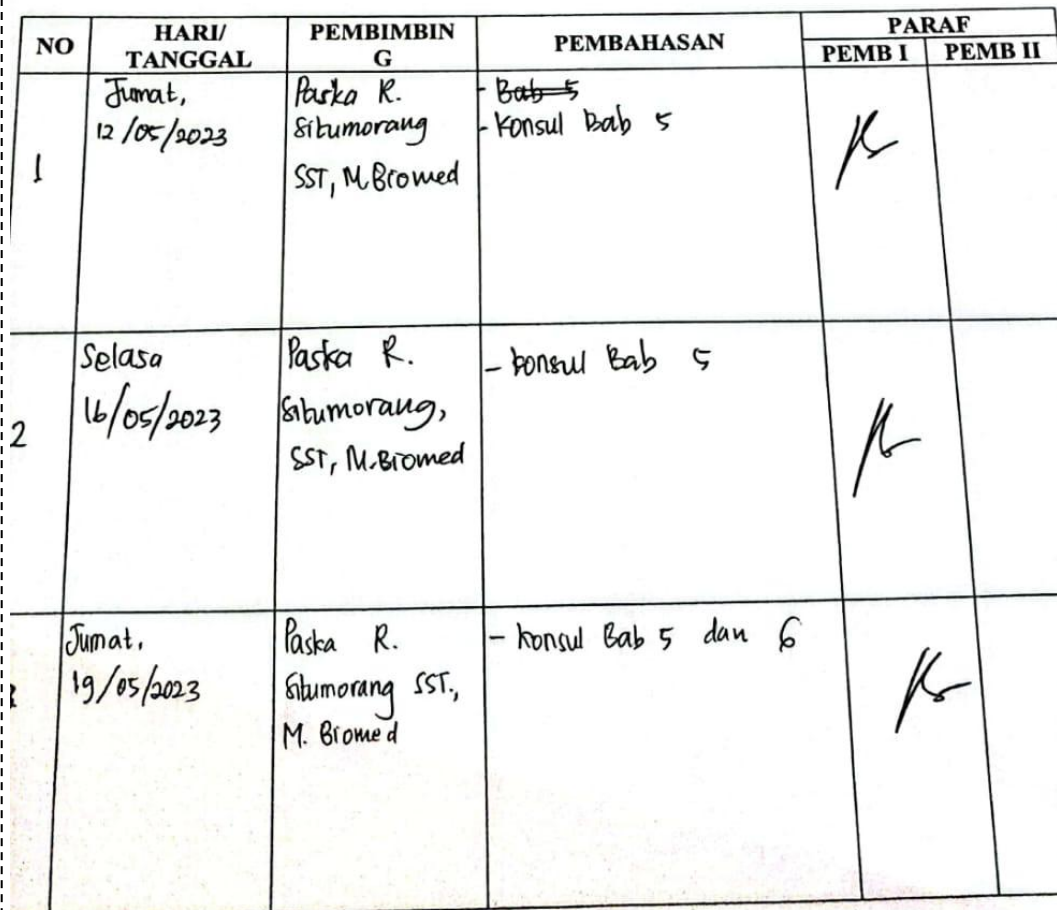 NO HARI/ PEMBIMBIN PEMBAHASAN PARAF
TANGGAL G PEMB I PEMB II
1
Jumat,
12/05/2023
Paska R.
Situmorang
SST, M.Biomed
- Bab 5
- Konsul Bab 5
2
Selasa
16/05/2023
Paska R.
Situmorang,
SST, M.Biomed
- konsul Bab 5
Jumat,
19/05/2023
Paska R.
Situmorang SST.,
M. Biomed
- konsul Bab 5 dan 6